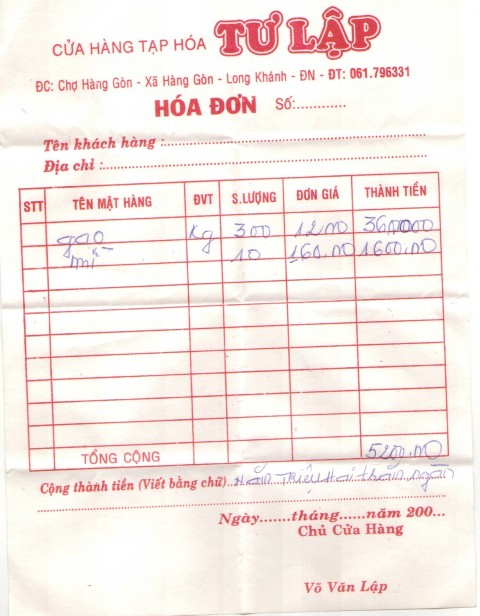 CỬA HÀNG TẠP HÓA TƯ LẬP
ĐC: Chợ Hàng Gòn - Xã Hàng Gòn - Long Khánh - ĐN - ĐT: 061.796331
HÓA ĐƠN Số:............
Tên khách hàng :
Địa chỉ :
STT TÊN MẶT HÀNG ĐVT S.LƯỢNG ĐƠN GIÁ THÀNH TIỀN
gạo Kg 300
mì 10 160.00 1600.00
TỔNG CỘNG 5200.00
Cộng thành tiền (Viết bằng chữ) Năm Triệu Hai trăm ngàn
Ngày.......tháng......năm 200...
Chủ Cửa Hàng
Võ Văn Lập